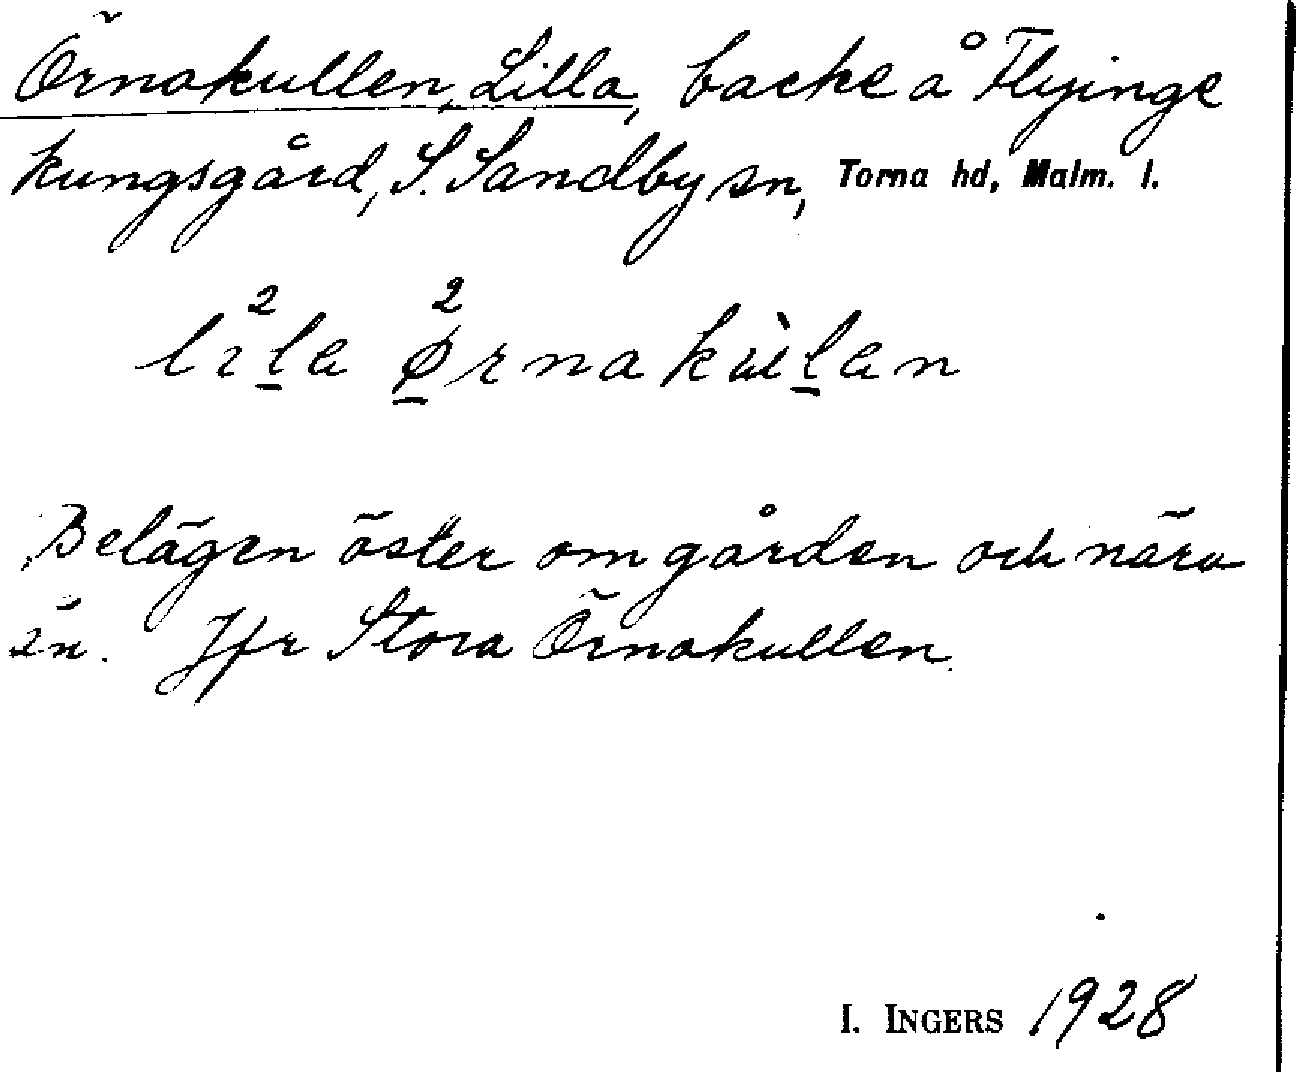 Örnakullen, Lilla, backe å Flyinge
kungsgård, S. Sandby sn, Torna hd, Malm. l.
lı²l̲a ø̲²rnakùl̲an
Belägen öster om gården och nära
ån. Jfr Stora Örnakullen.
I. INGERS 1928